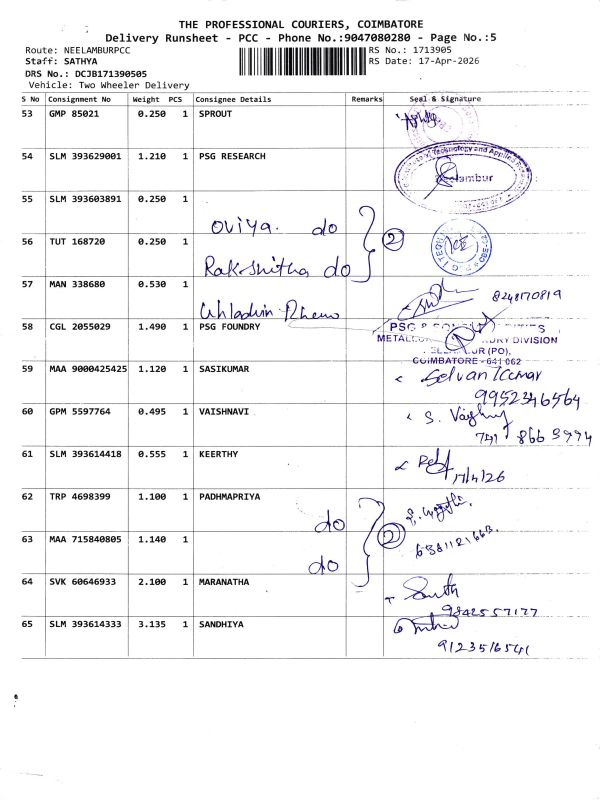 THE PROFESSIONAL COURIERS, COIMBATORE
Delivery Runsheet - PCC - Phone No.:9047080280 - Page No.:5
Route: NEELAMBURPCC
RS No.: 1713905
Staff: SATHYA
RS Date: 17-Apr-2026
DRS No.: DCJB171390505
Vehicle: Two Wheeler Delivery
S No Consignment No Weight PCS Consignee Details Remarks Seal & Signature
53 GMP 85021 0.250 1 SPROUT
54 SLM 393629001 1.210 1 PSG RESEARCH
Technology and Applied
Neelambur
55 SLM 393603891 0.250 1
Oviya. do
2
56 TUT 168720 0.250 1
Rakshitha do
57 MAN 338680 0.530 1
8248170819
58 CGL 2055029 1.490 1 PSG FOUNDRY
PSG &
DIVISION
(PO),
COIMBATORE - 641 062
59 MAA 9000425425 1.120 1 SASIKUMAR
Selvan Kumar
9952346564
60 GPM 5597764 0.495 1 VAISHNAVI
61 SLM 393614418 0.555 1 KEERTHY
17/4/26
62 TRP 4698399 1.100 1 PADHMAPRIYA
do
2
63 MAA 715840805 1.140 1
do
64 SVK 60646933 2.100 1 MARANATHA
9842557177
65 SLM 393614333 3.135 1 SANDHIYA
9123516541